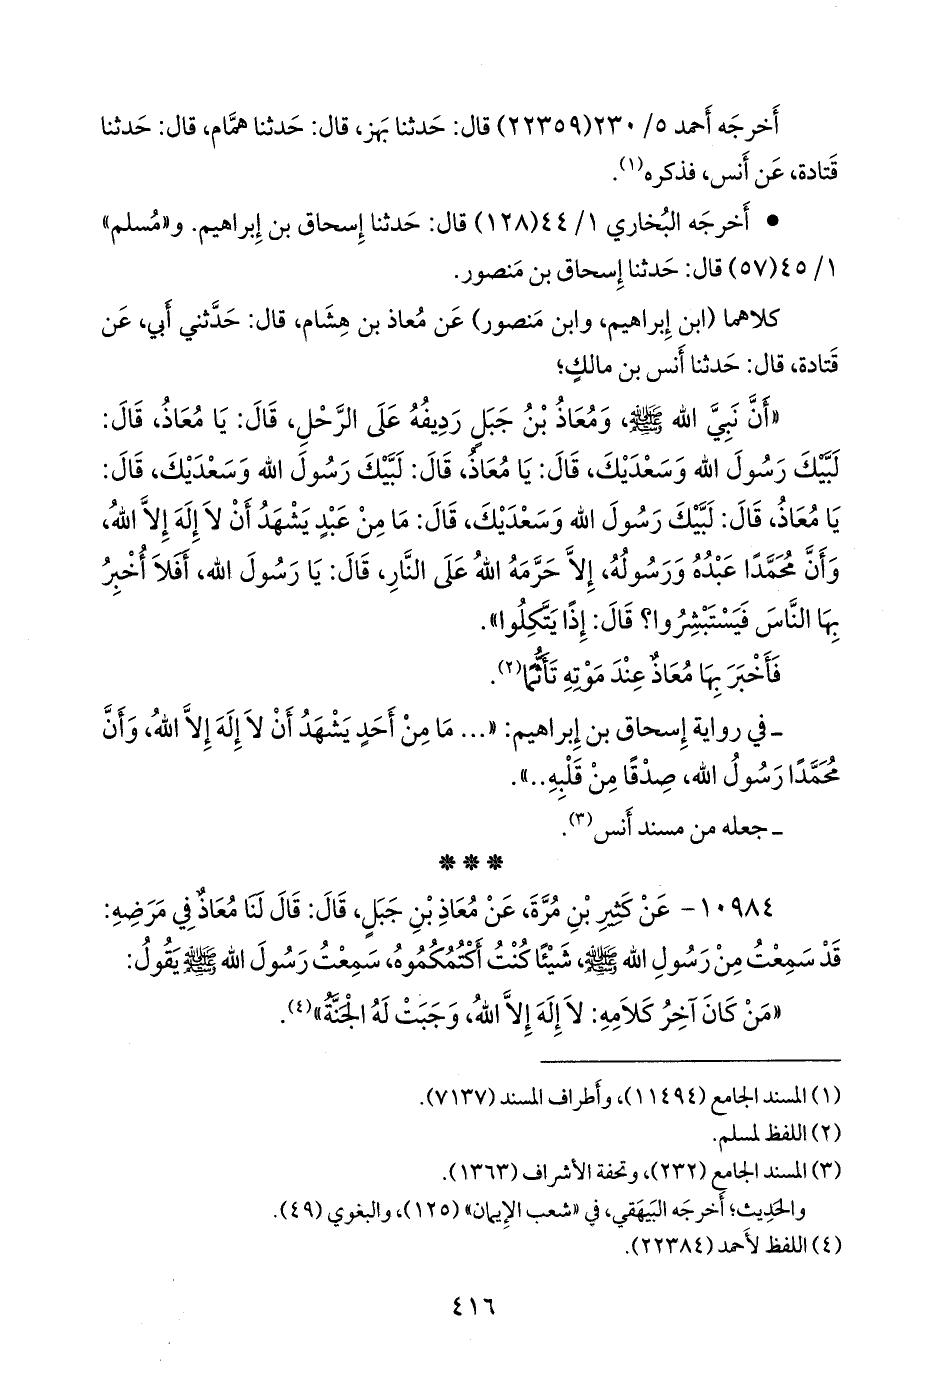 أَخرجَه أَحمد ٥/ ٢٣٠(٢٢٣٥٩) قال: حَدثنا بَهز، قال: حَدثنا همَّام، قال: حَدثنا
قَتادة، عَن أَنس، فذكره(١).
• أَخرجَه البُخاري ١/ ٤٤(١٢٨) قال: حَدثنا إِسحاق بن إِبراهيم. و«مُسلم»
١/ ٤٥(٥٧) قال: حَدثنا إِسحاق بن مَنصور.
كلاهما (ابن إِبراهيم، وابن مَنصور) عَن مُعاذ بن هِشَام، قال: حَدَّثني أَبي، عَن
قَتادة، قال: حَدثنا أَنس بن مالكٍ؛
«أَنَّ نَبِيَّ الله ﷺ، وَمُعَاذُ بْنُ جَبَلٍ رَدِيفُهُ عَلَى الرَّحْلِ، قَالَ: يَا مُعَاذُ، قَالَ:
لَبَّيْكَ رَسُولَ الله وَسَعْدَيْكَ، قَالَ: يَا مُعَاذُ، قَالَ: لَبَّيْكَ رَسُولَ الله وَسَعْدَيْكَ، قَالَ:
يَا مُعَاذُ، قَالَ: لَبَّيْكَ رَسُولَ الله وَسَعْدَيْكَ، قَالَ: مَا مِنْ عَبْدٍ يَشْهَدُ أَنْ لاَ إِلَهَ إِلاَّ اللهُ،
وَأَنَّ مُحَمَّدًا عَبْدُهُ وَرَسُولُهُ، إِلاَّ حَرَّمَهُ اللهُ عَلَى النَّارِ، قَالَ: يَا رَسُولَ الله، أَفَلاَ أُخْبِرُ
بِهَا النَّاسَ فَيَسْتَبْشِرُوا؟ قَالَ: إِذًا يَتَّكِلُوا».
فَأَخْبَرَ بِهَا مُعَاذٌ عِنْدَ مَوْتِهِ تَأَثُّمًا(٢).
ـ في رواية إِسحاق بن إِبراهيم: «... مَا مِنْ أَحَدٍ يَشْهَدُ أَنْ لاَ إِلَهَ إِلاَّ اللهُ، وَأَنَّ
مُحَمَّدًا رَسُولُ الله، صِدْقًا مِنْ قَلْبِهِ..».
ـ جعله من مسند أَنس(٣).
***
١٠٩٨٤- عَنْ كَثِيرِ بْنِ مُرَّةَ، عَنْ مُعَاذِ بْنِ جَبَلٍ، قَالَ: قَالَ لَنَا مُعَاذٌ فِي مَرَضِهِ:
قَدْ سَمِعْتُ مِنْ رَسُولِ الله ﷺ، شَيْئًا كُنْتُ أَكْتُمُكُمُوهُ، سَمِعْتُ رَسُولَ الله ﷺ يَقُولُ:
«مَنْ كَانَ آخِرُ كَلاَمِهِ: لاَ إِلَهَ إِلاَّ اللهُ، وَجَبَتْ لَهُ الْجَنَّةُ»(٤).
(١) المسند الجامع (١١٤٩٤)، وأَطراف المسند (٧١٣٧).
(٢) اللفظ لمسلم.
(٣) المسند الجامع (٢٣٢)، وتحفة الأشراف (١٣٦٣).
والحَدِيث؛ أَخرجَه البَيهَقي، في «شعب الإِيمان» (١٢٥)، والبغوي (٤٩).
(٤) اللفظ لأَحمد (٢٢٣٨٤).
٤١٦